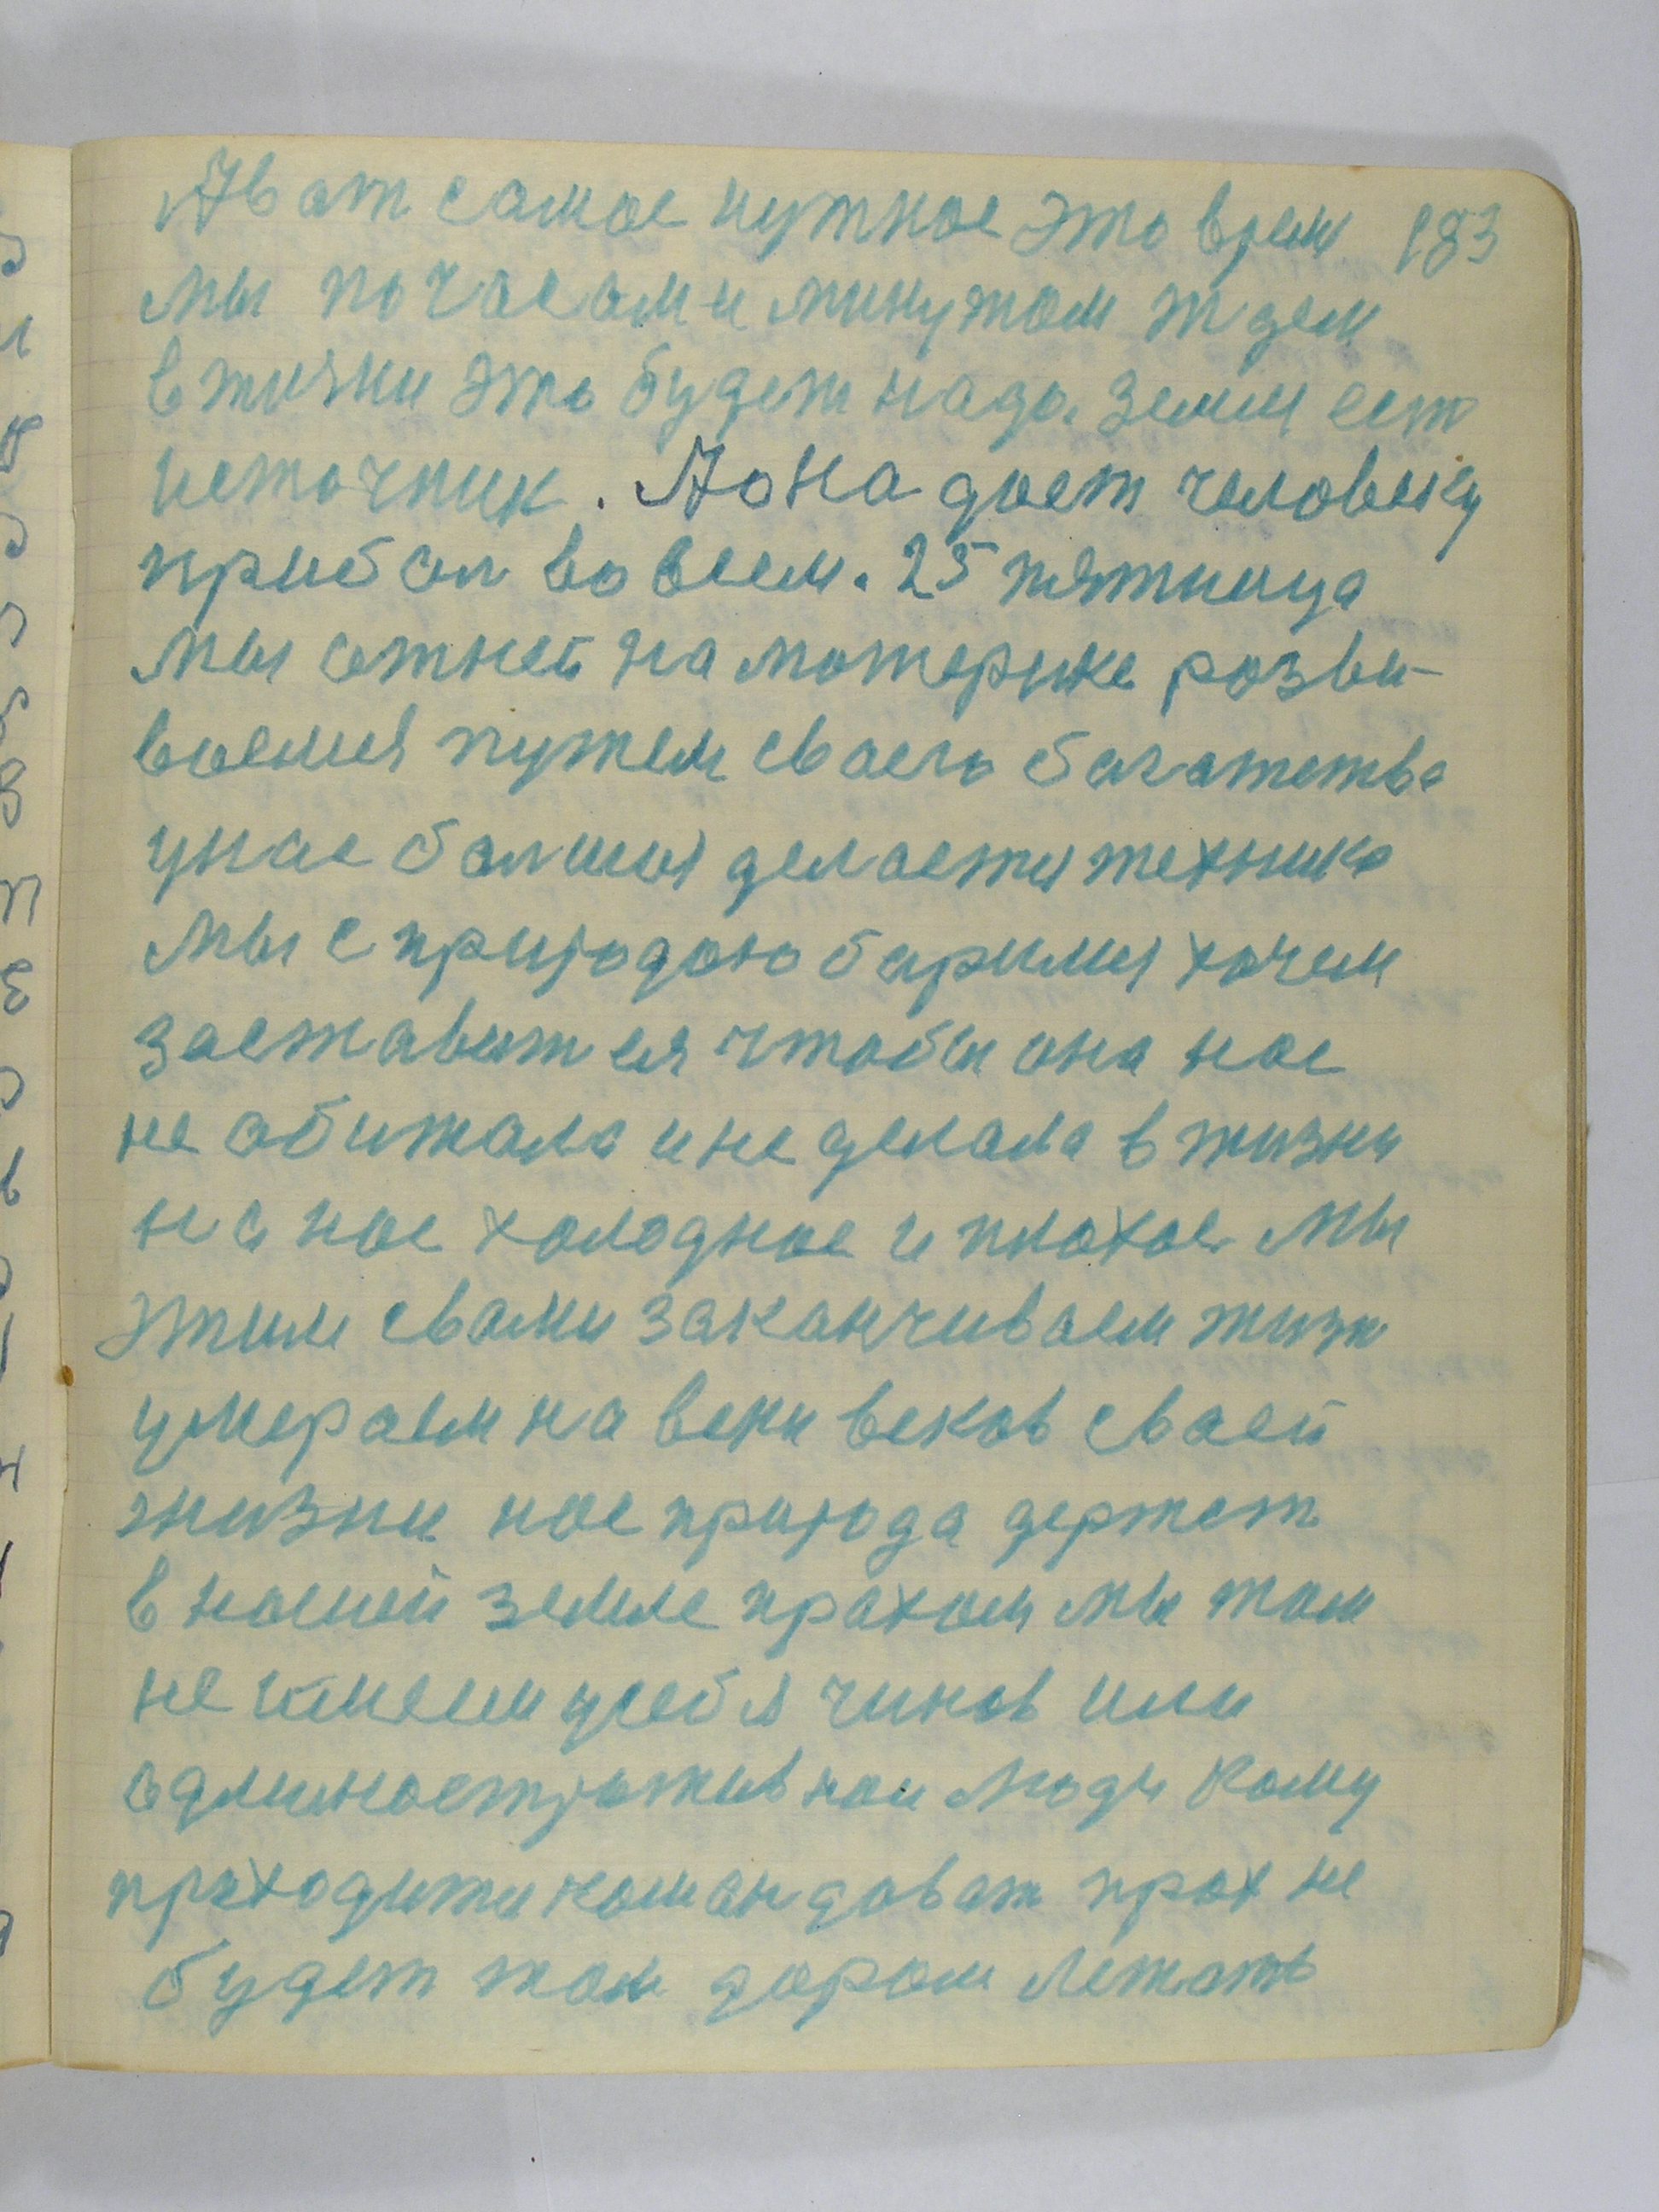 А вот самое нужное это врем 183
мы по часам и минутам ждем
в жизни это будет надо. Земля ест
источник. А она дает человеку
прибол во всем. 25 пятница
мы с тней на материке розви-
ваемся путем сваего багатства
у нас болшая делается техника
мы с природою боримся хочем
заставит ея чтобы она нас
не обижала и не делала в жизни
на нас холодное и плохое. Мы
этим с вами заканчиваем жизн
умераем на веки веков сваей
жизни нас природа держет
в нашей земле прахом мы там
не имеем у себя чинов или
люди кому
приходится командоват прах не
будет там даром лежать